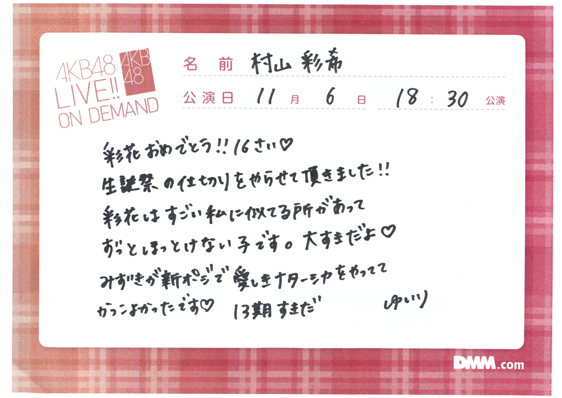 AKB48
LIVE!!
ON DEMAND
AKB
48
名前 村山 彩希
公演日 11月 6日 18:30 公演
彩花おめでとう!!16さい♡
生誕祭の仕切りをやらせて頂きました!!
彩花はすごい私に似てる所があって
ずっとほっとけない子です。大すきだよ♡
みずきが新ポジで愛しきナターシャをやってて
かっこよかったです♡ 13期すきだ ゆいり
DMM.com